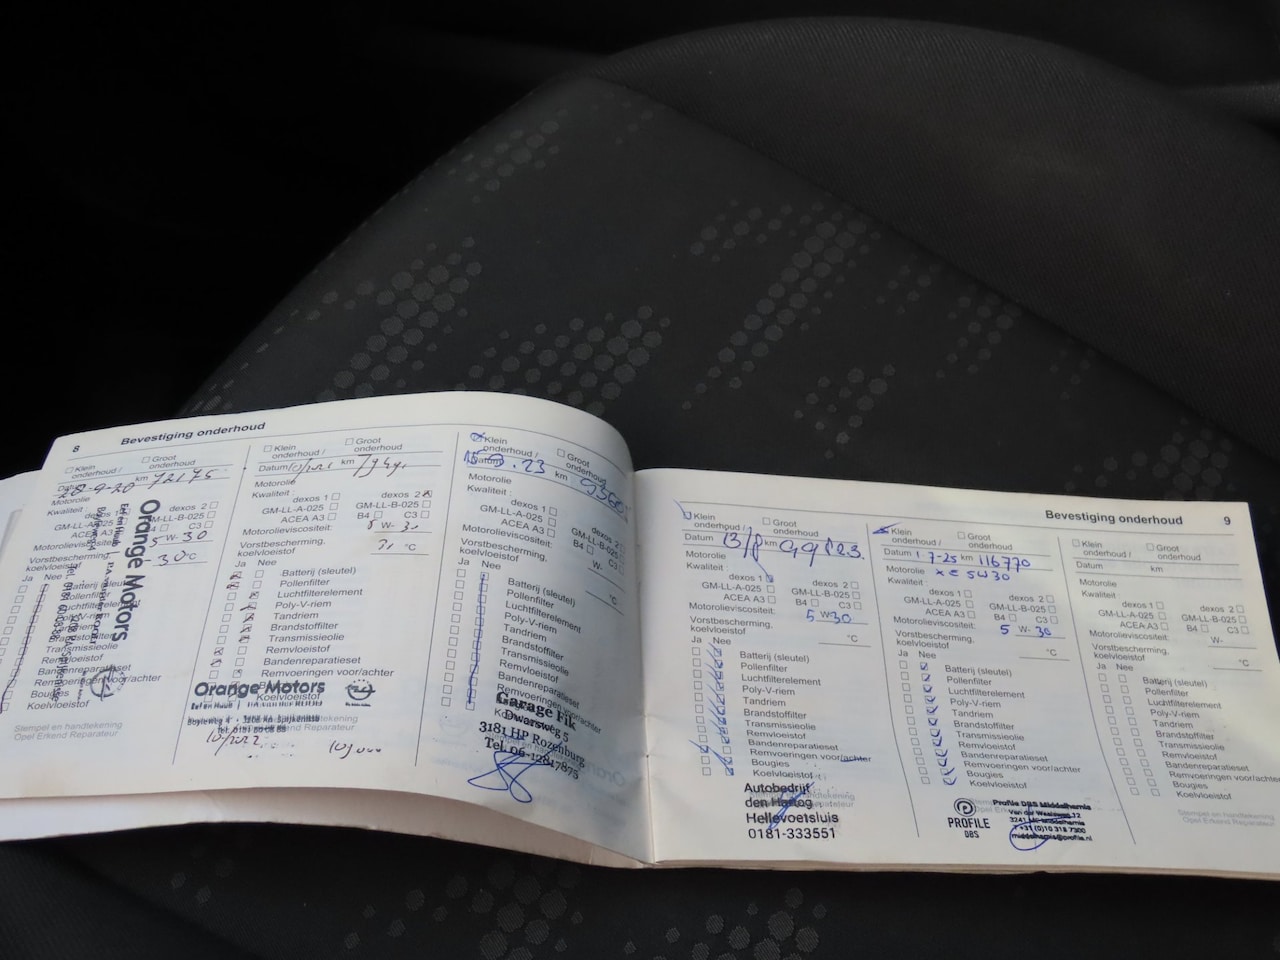 8 Bevestiging onderhoud
Klein onderhoud / Groot onderhoud
Datum 28-9-20 km 72175
Motorolie
Kwaliteit :
dexos 2
GM-LL-A-025 GM-LL-B-025
ACEA A3 C3
Motorolieviscositeit:
5 W- 30
Vorstbescherming.
koelvloeistof
-30°C
Ja Nee
Batterij (sleutel)
Pollenfilter
Luchtfilterelement
Poly-V-riem
Tandriem
Brandstoffilter
Transmissieolie
Remvloeistof
Bandenreparatieset
Remvoeringen voor/achter
Bougies
Koelvloeistof
Orange Motors
Stempel en handtekening
Opel Erkend Reparateur
Klein onderhoud / Groot onderhoud
Datum km
Motorolie
Kwaliteit :
dexos 1 dexos 2
GM-LL-A-025 GM-LL-B-025
ACEA A3 B4 C3
Motorolieviscositeit: W- 30
Vorstbescherming.
koelvloeistof
°C
Ja Nee
Batterij (sleutel)
Pollenfilter
Luchtfilterelement
Poly-V-riem
Tandriem
Brandstoffilter
Transmissieolie
Remvloeistof
Bandenreparatieset
Remvoeringen voor/achter
Bougies
Koelvloeistof
Orange Motors
10/2022
Klein onderhoud / Groot onderhoud
Datum km
Motorolie
Kwaliteit :
dexos 1 dexos 2
GM-LL-A-025 GM-LL-B-025
ACEA A3 B4 C3
Motorolieviscositeit: W-
Vorstbescherming.
koelvloeistof
°C
Ja Nee
Batterij (sleutel)
Pollenfilter
Luchtfilterelement
Poly-V-riem
Tandriem
Brandstoffilter
Transmissieolie
Remvloeistof
Bandenreparatieset
Remvoeringen voor/achter
Garage Fik
Dwarsweg 5
3181 HP Rozenburg
Tel. 06-12817875
Bevestiging onderhoud 9
Klein onderhoud / Groot onderhoud
Datum 13/8 km
Motorolie
Kwaliteit :
dexos 1 dexos 2
GM-LL-A-025 GM-LL-B-025
ACEA A3 B4 C3
Motorolieviscositeit:
5 W-30
Vorstbescherming.
koelvloeistof
°C
Ja Nee
Batterij (sleutel)
Pollenfilter
Luchtfilterelement
Poly-V-riem
Tandriem
Brandstoffilter
Transmissieolie
Remvloeistof
Bandenreparatieset
Remvoeringen voor/achter
Bougies
Koelvloeistof
Autobedrijf
den Hartog
Hellevoetsluis
0181-333551
Klein onderhoud / Groot onderhoud
Datum 1 7-25 km 116770
Motorolie x E 5W30
Kwaliteit :
dexos 1 dexos 2
GM-LL-A-025 GM-LL-B-025
ACEA A3 B4 C3
Motorolieviscositeit:
5 W- 30
Vorstbescherming.
koelvloeistof
°C
Ja Nee
Batterij (sleutel)
Pollenfilter
Luchtfilterelement
Poly-V-riem
Tandriem
Brandstoffilter
Transmissieolie
Remvloeistof
Bandenreparatieset
Remvoeringen voor/achter
Bougies
Koelvloeistof
PROFILE
DBS
Profile DBS Middelharnis
middelharnis@profile.nl
Klein onderhoud / Groot onderhoud
Datum km
Motorolie
Kwaliteit :
dexos 1 dexos 2
GM-LL-A-025 GM-LL-B-025
ACEA A3 B4 C3
Motorolieviscositeit: W-
Vorstbescherming.
koelvloeistof
°C
Ja Nee
Batterij (sleutel)
Pollenfilter
Luchtfilterelement
Poly-V-riem
Tandriem
Brandstoffilter
Transmissieolie
Remvloeistof
Bandenreparatieset
Remvoeringen voor/achter
Bougies
Koelvloeistof
Stempel en handtekening
Opel Erkend Reparateur